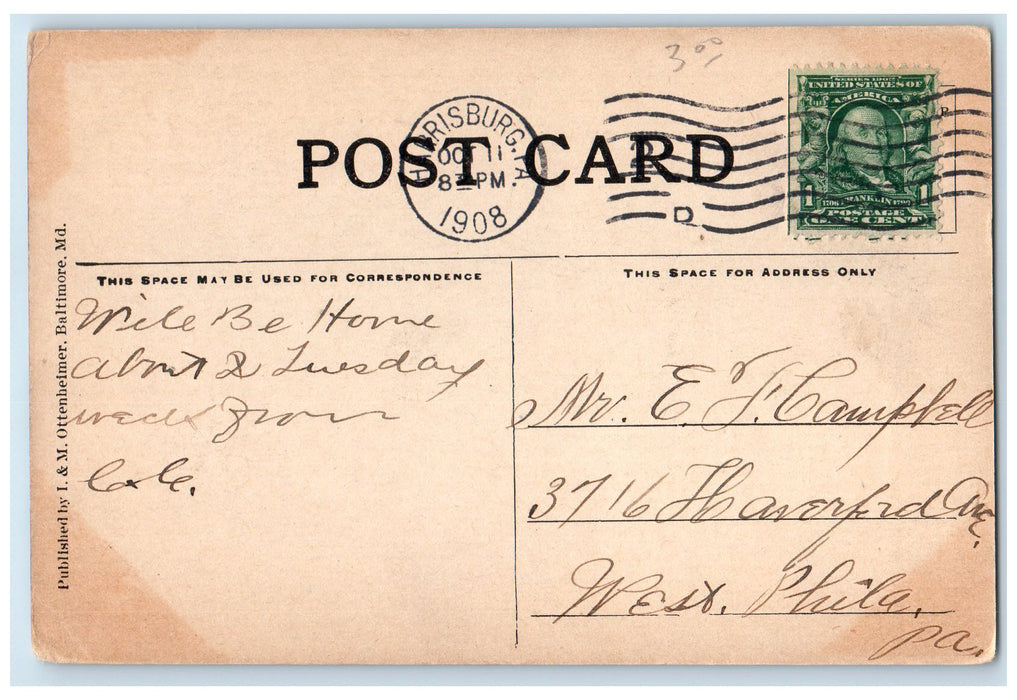 3.00
SERIES 1902
UNITED STATES OF
AMERICA
1 1706 FRANKLIN 1790 1
POSTAGE
ONE CENT
HARRISBURG, PA.
OCT 11
8 30 PM.
1908
D
POST CARD
THIS SPACE MAY BE USED FOR CORRESPONDENCE
THIS SPACE FOR ADDRESS ONLY
Published by I. & M. Ottenheimer, Baltimore, Md.
Will Be Home
about 2 Tuesday
week from
Mr. E. F. Campbell
3716 Haverford Ave.
West. Phila.
Pa.